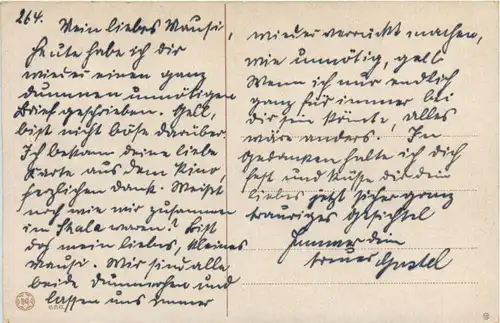 264.
Mein liebes Mausi,
heute habe ich dir
wieder einen ganz
dummen unnötigen
Brief geschrieben. Gell,
bist nicht böse darüber.
Ich bekam deine liebe
Karte aus dem Kino,
herzlichen Dank. Weißt
noch wie wir zusammen
im Skala waren? Bist
doch mein liebes, kleines
Mausi. Wir sind alle
beide dummerchen und
lassen uns immer
wieder verrückt machen,
wie unnötig, gell
Wenn ich nur endlich
ganz für immer bei
dir sein könnte, alles
wäre anders. In
Gedanken halte ich dich
fest und küsse dir dein
liebes jetzt sicher ganz
trauriges Gesichtel
Immer dein
treuer Gustel